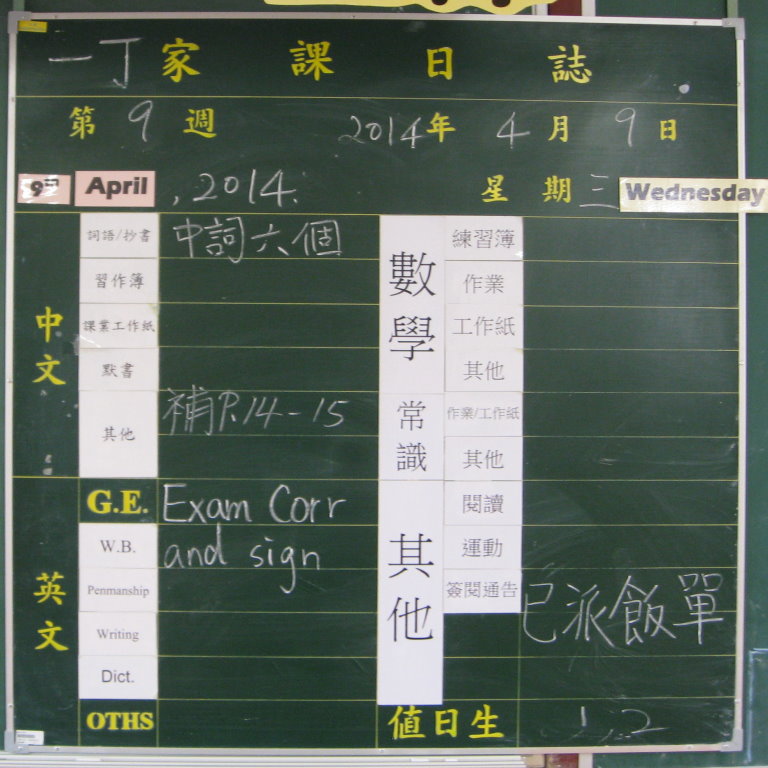 一丁家課日誌
第9週 2014年4月9日
9th April, 2014. 星期三 Wednesday
中文
詞語/抄書 中詞六個
習作簿
課業工作紙
默書
其他 補P.14-15
英文
G.E. Exam Corr
W.B. and sign
Penmanship
Writing
Dict.
OTHS
數學
練習簿
作業
工作紙
其他
常識
作業/工作紙
其他
其他
閱讀
運動
簽閱通告 已派飯單
值日生 1, 2